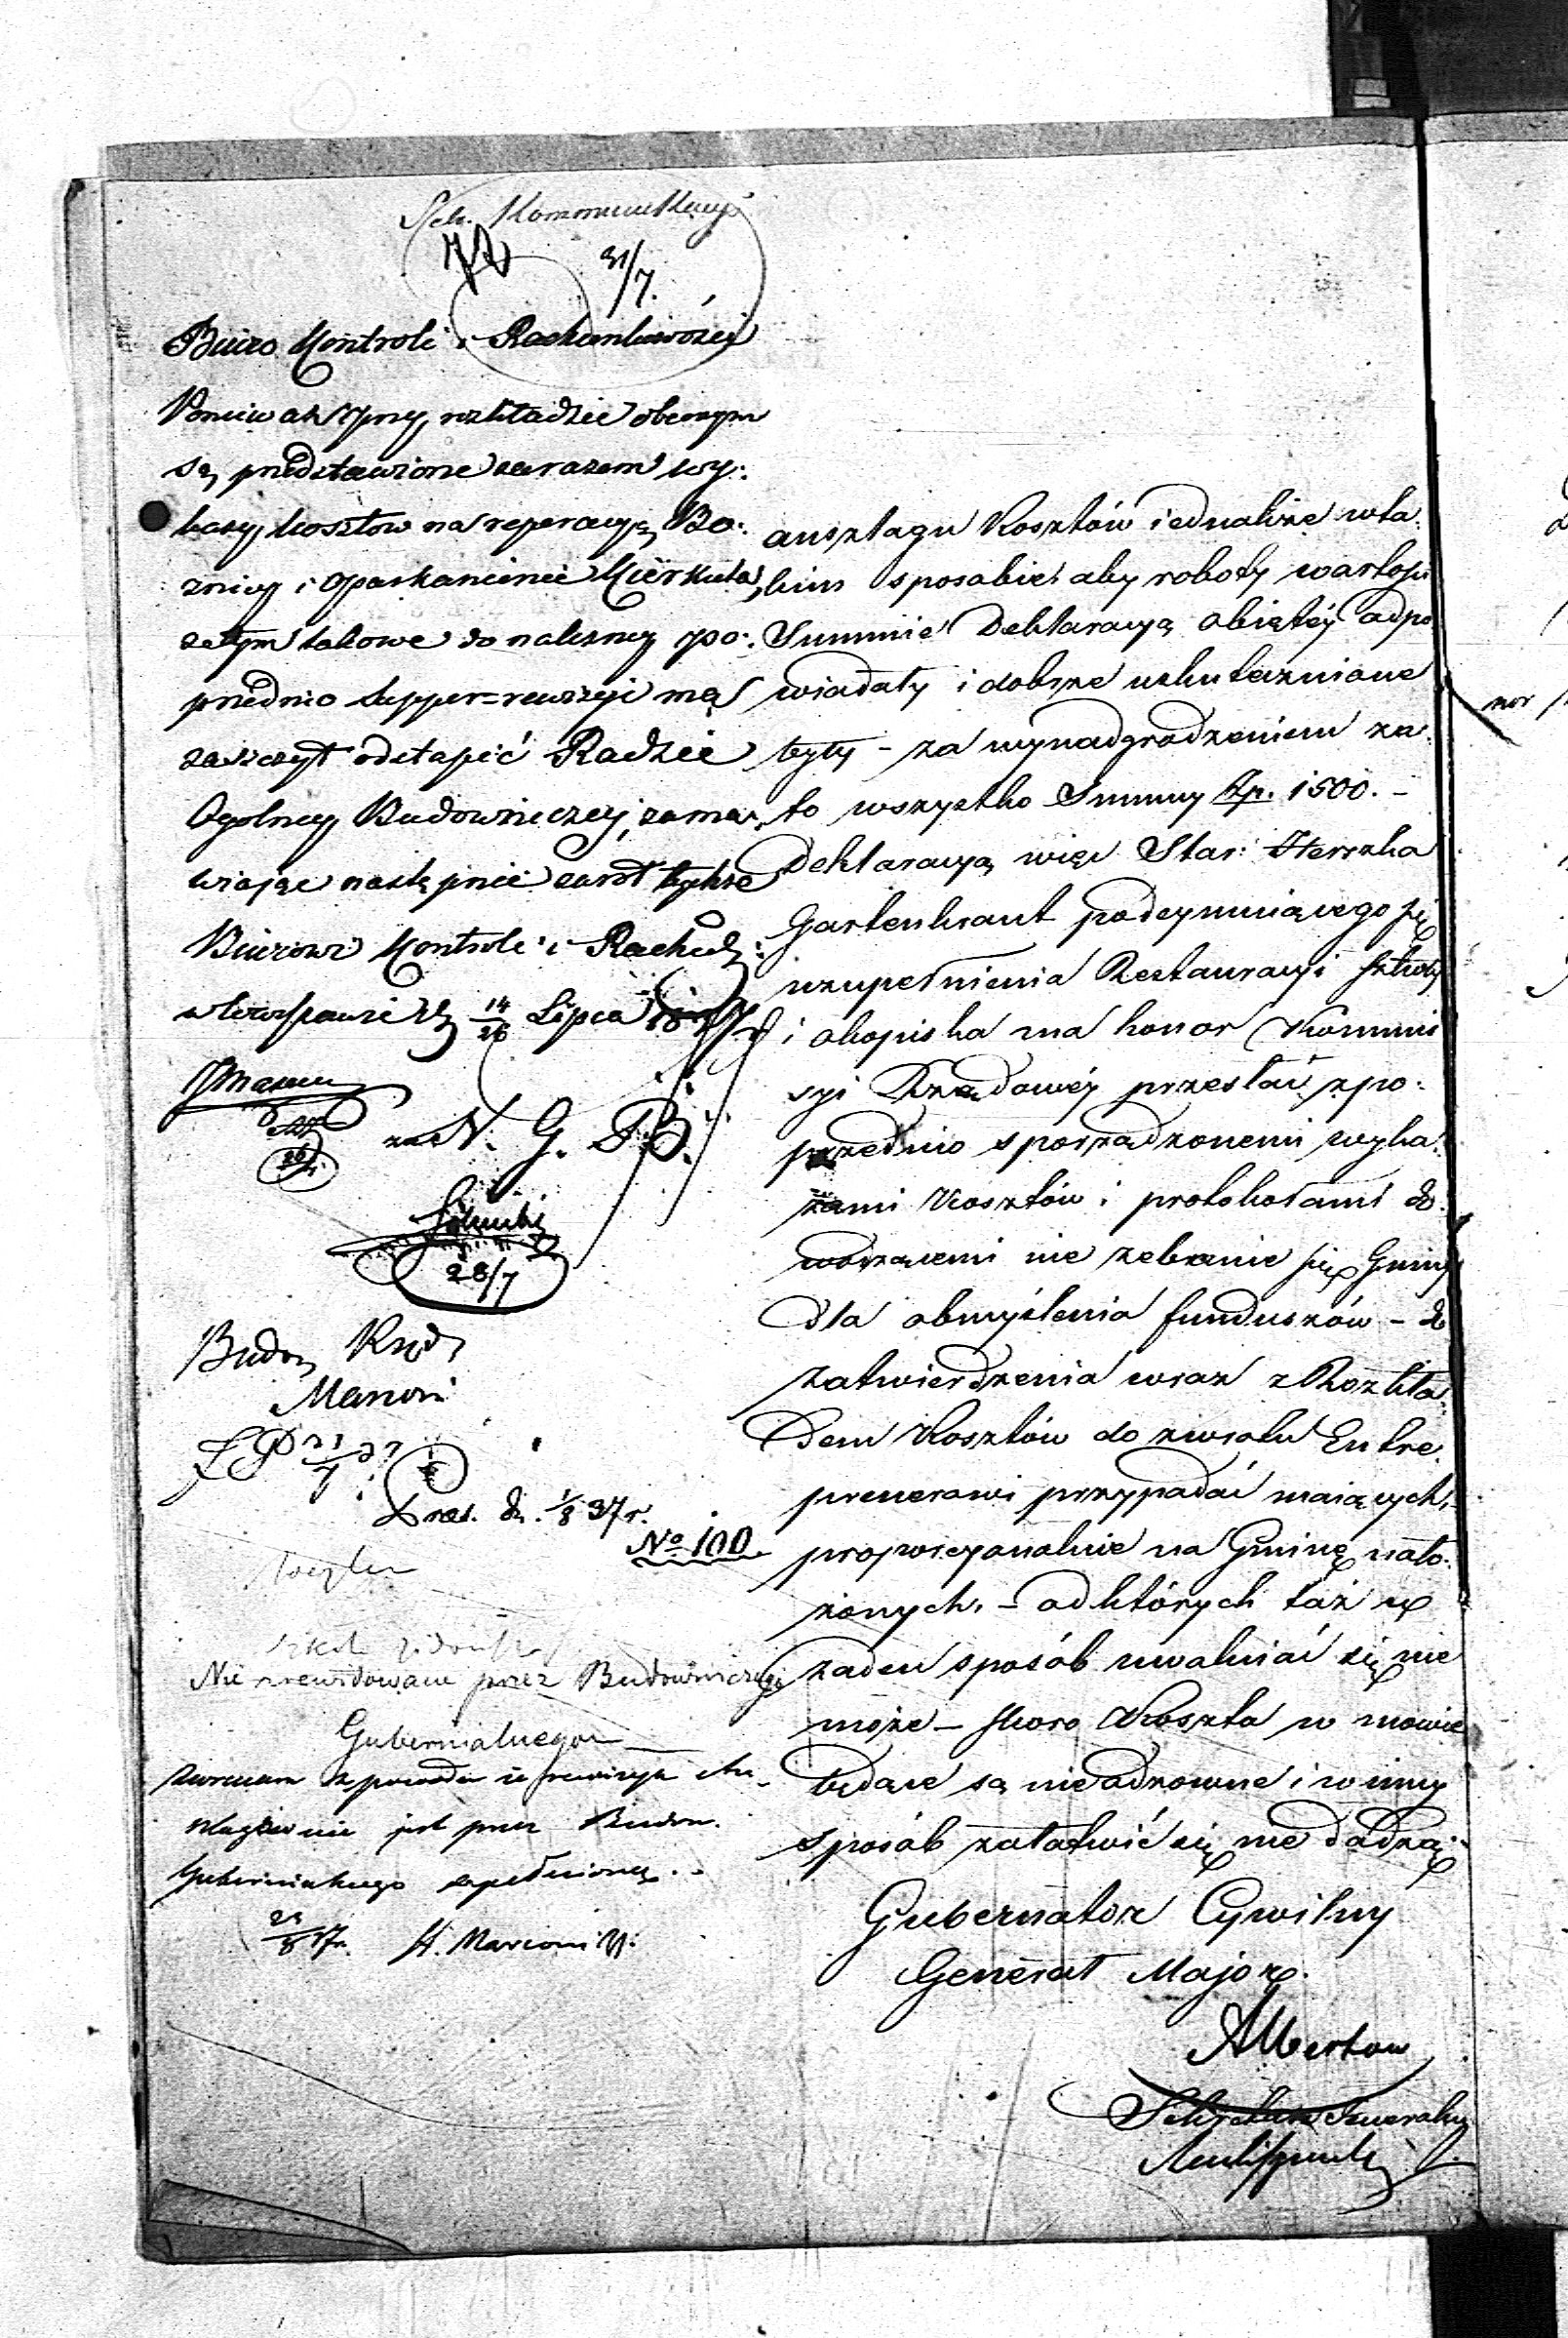 Sek. Kommunikacyi
31/7.
Biuro Kontroli i Rachunkowości
Ponieważ przy rozkładzie obecnym
są przedstawione zarazem wy:
kazy kosztów na reperacyą Bo:
znicy i oparkanienie Kierkuta,
zatym takowe do należney po:
przednio supper=rewizyi ma
zaszczyt odstąpić Radzie
Ogolney Budowniczey, zama:
wiając następnie zwrót tychże
Biurowi Kontroli i Rachun:
w Warszawie d. 14/26 Lipca 1837 r.
za N. G. B.
28/7
Budow. Rząd.
Marconi
Pres. d. 1/8 37 r.
No 100
Nie zrewidowane przez Budowniczego
Gubernialnego
zwracam z powodu iż rewizya An-
szlagów nie jest przez Budow.
Gubernialnego dopełnioną.
H. Marconi
anszlagu Kosztów iednakże w ta:
kim sposobie aby roboty wartości
Summie Deklaracyą obiętéy odpo
wiadały i dobrze uskutecznione
były – za wynadgrodzeniem za
to wszystko Summy Zp. 1500. –
Deklaracyą więc Star: Herszka
Gartenkraut podeymuiącego się
uzupełnienia Restauracyi Szkoły
i okopiska ma honor Kommis
syi Rządowéy przesłać z po:
przednio sporządzonemi wyka:
zami Kosztów i protokołami do
wodzącemi nie zebranie się Gminy
dla obmyślenia funduszów – do
zatwierdzenia wraz z Rozkła:
dem Kosztów do zwrotu Entre
prenerowi przypadać maiących,
proporcyonalnie na Gminę nało:
żonych, – od których taż w
żaden sposób uwalniać się nie
może – skoro Koszta w mowie
będące są nieodzowne i w inny
sposób załatwić się nie dadzą. –
Gubernator Cywilny
Generał Major
Albertow
Sekretarz Jeneralny